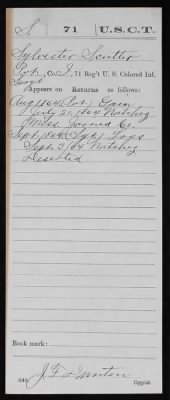 S | 71 | U.S.C.T.
Sylvester Souther
Pvt., Co. I, 71 Reg't U. S. Colored Inf.
Sergt
Appears on Returns as follows:
Aug 1864, Pvt, Gain
July 21, 1864 Natchez
Miss. Joined Co.
Sept. 1864, Sgt, Loss
Sept. 3/64 Natchez
Deserted
Book mark:
(546)
Copyist.